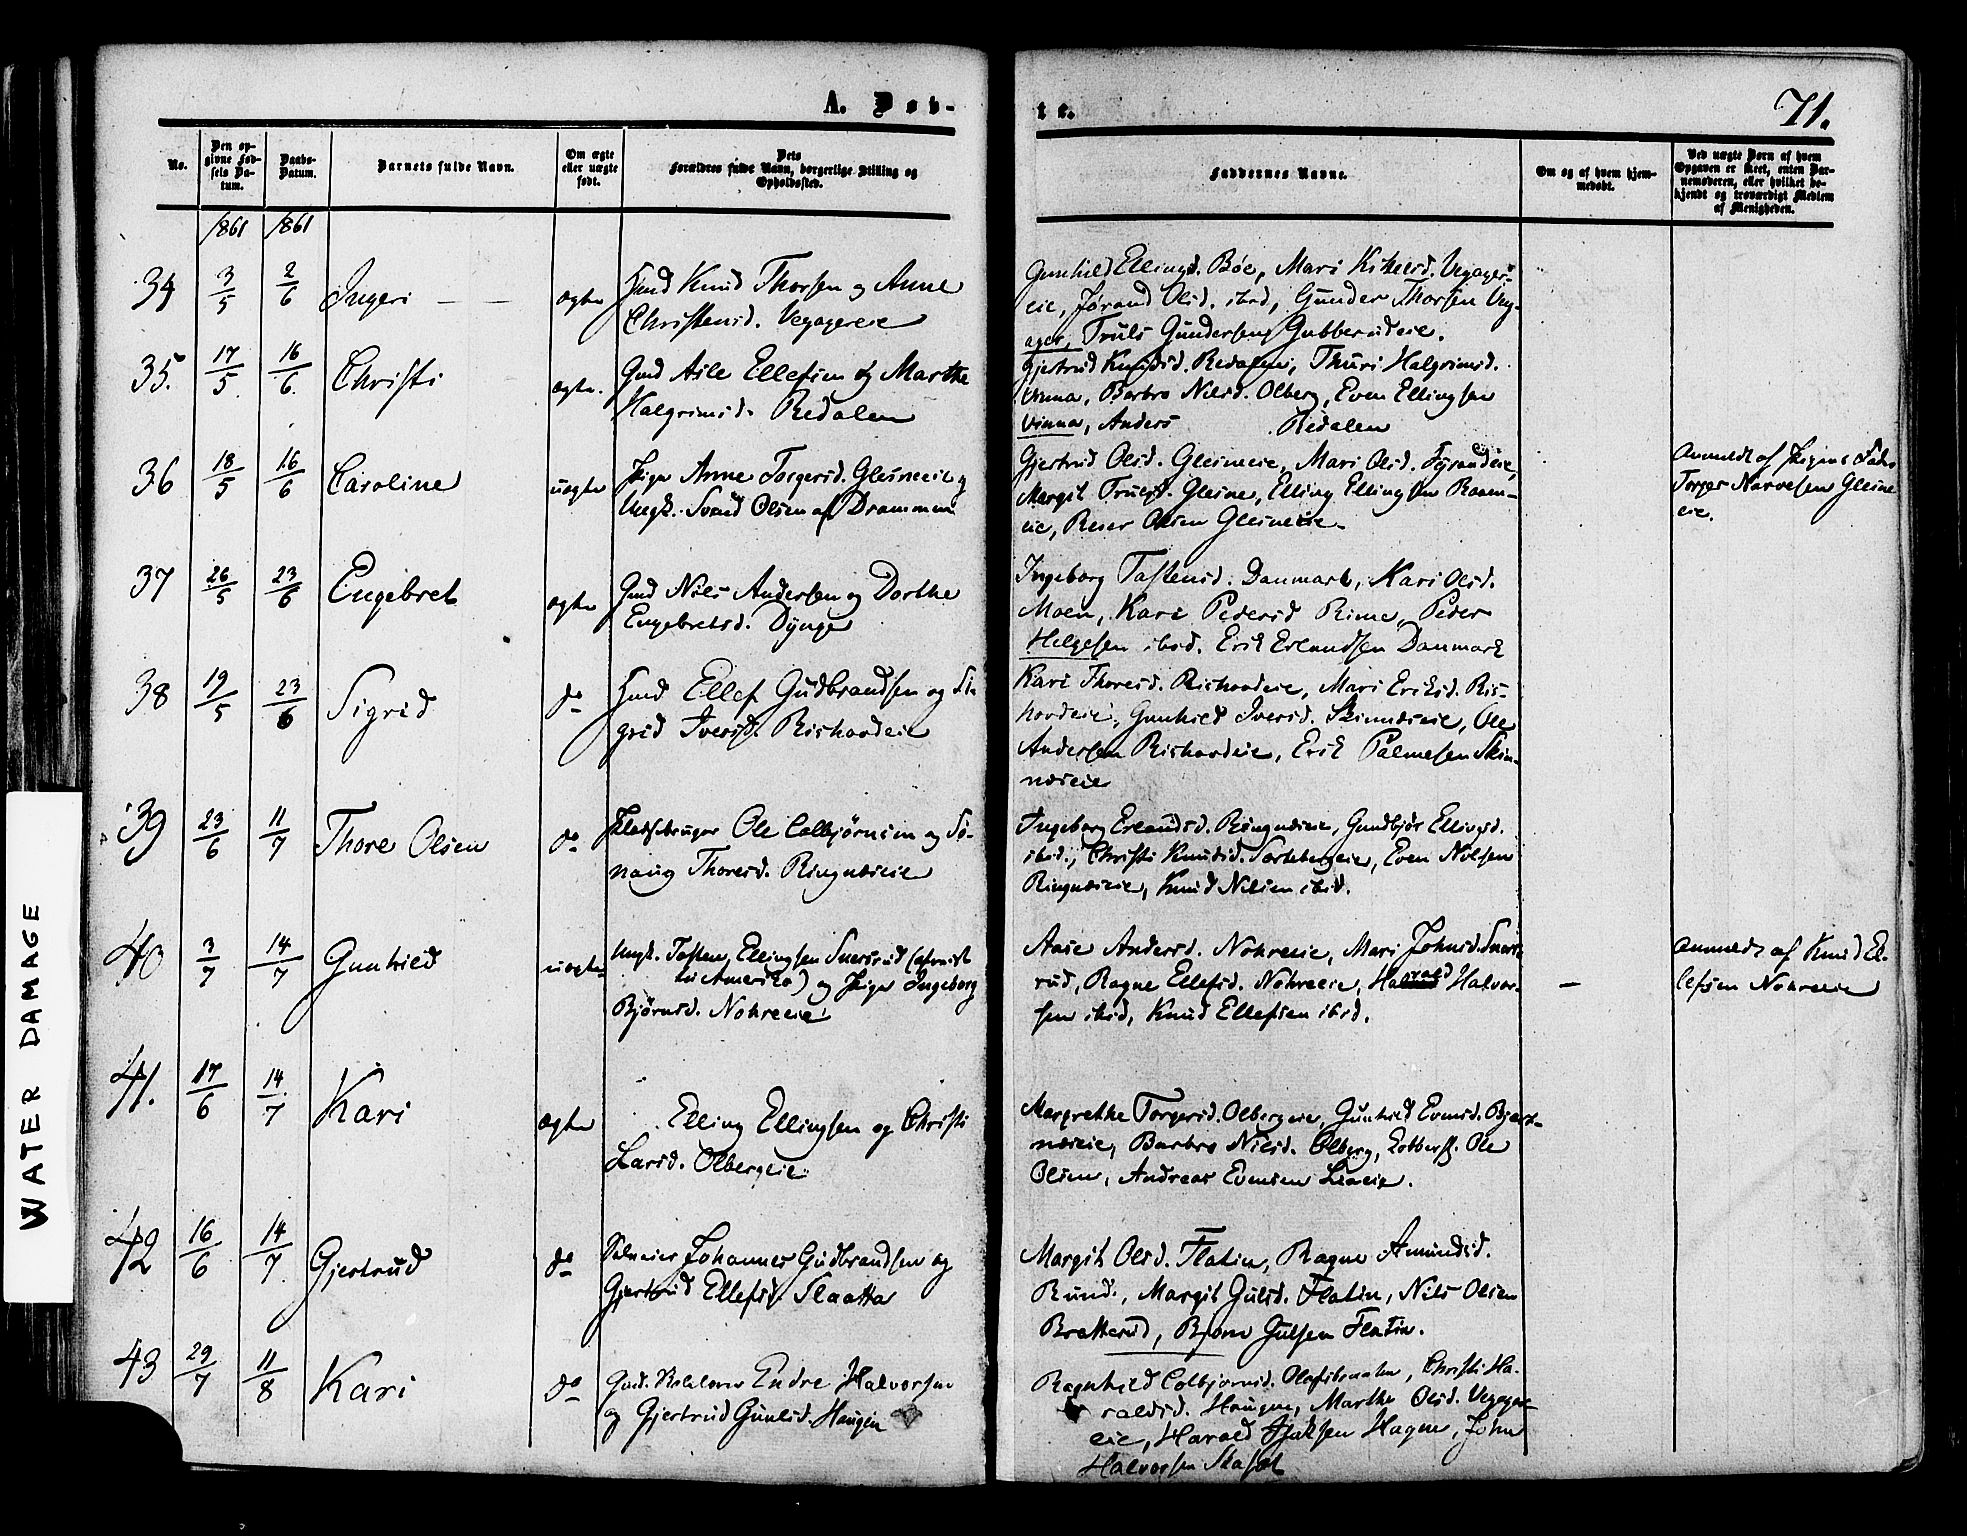 A. Døb-
te.
71.
No.
Den op-
givne Fød-
sels Da-
tum.
Daabs-
Datum.
Barnets fulde Navn.
Om ægte
eller uægte
født.
Dets
Forældres fulde Navn, borgerlige Stilling og
Opholdssted.
Faddernes Navne.
Om og af hvem hjem-
medøbt.
Ved uægte Børn af hvem
Opgaven er skeet, enten Bar-
nemoderen, eller hvilket be-
kjendt og troværdigt Medlem
af Menigheden.
1861 1861
34 3/5 2/6 Ingeri — — ægte
Hmd Knud Thorsen og Anne
Christensd. Vegagereie
Gunhild Ellingsd. Bøe, Mari Kittelsd. Vegager-
eie, Jørand Olsd. ibid, Gunder Thorsen Veg-
ager, Truls Gundersen Gubberudeie.
35. 17/5 16/6 Christi ægte.
Gmd Asle Ellefsen og Marthe
Halgrimsd. Redalen
Gjertrud Knudsd. Redalen, Thuri Halgrimsd.
Vinna, Barbro Nilsd. Olberg, Even Ellingsen
Vinna, Anders Redalen
36 18/5 16/6 Caroline uægte
Pige Anne Torgersd. Glesneeie og
Ungk. Svend Olsen af Drammen
Gjertrud Olsd. Glesneeie, Mari Olsd.
Margit Trulsd. Glesne, Elling Ellingsen Roaen-
eie, Reier Olsen Glesneeie.
Anmeldt af Pigens Fader
Torger Narvesen Glesne
eie.
37 26/5 23/6 Engebret ægte
Gmd Niels Andersen og Dorthe
Engebretsd. Dynge
Ingeborg Tastensd. Danmark, Kari Olsd.
Moen, Kari Pedersd Rime, Peder
Helgesen ibid. Erik Erlandsen Danmark
38 19/5 23/6 Sigrid do
Hmd Ellef Gudbrandsen og Si-
grid Iversd. Rishovdeie
Kari Thoresd. Rishovdeie, Mari Eriksd. Ris-
hovdeie, Gunhild Iversd. Skinneseie, Ole
Andersen Rishovdeie, Erik Palmesen Skin-
næseie
39 23/6 11/7 Thore Olsen do
Pladsbruger Ole Colbjørnsen og So-
naug Thoresd. Ringnæseie
Ingeborg Erlandsd. Ringnæseie, Gundbjør Ellingsd.
ibid., Christi Knudsd. Sortebergeie, Even Nilsen
Ringnæseie, Knud Nilsen ibid.
40 3/7 14/7 Gunhild uægte
Ungk. Tosten Ellingsen Snersrud (afreist
til Amerika) og Pige Ingeborg
Bjørnsd. Nohreeie
Aase Andersd. Nohreeie, Mari Johnsd. Sners-
rud, Ragne Ellefsd. Nohreeie, Harald Halvor-
sen ibid, Knud Ellefsen ibid.
—
Anmeldt af Knud El-
lefsen Nohreeie
41. 17/6 14/7 Kari ægte
Elling Ellingsen og Christi
Larsd. Olbergeie
Margrethe Torgersd. Olbergeie, Gunhild Evensd. Bjørn-
næseie, Barbro Nilsd. Olberg, Ole
Olsen, Andreas Evensen Lieeie.
42 16/6 14/7 Gjertrud do
Selveier Johannes Gudbrandsen og
Gjertrud Ellefsd. Slaatta
Margit Olsd. Flatin, Ragne Amundsd.
Rund., Margit Gulsd. Flatin, Nils Olsen
Bratterud, Bjørn Gulsen Flatin.
43 29/7 11/8 Kari do
Gmd. Endre Halvorsen
og Gjertrud Gunlsd. Haugen
Ragnhild Colbjørnsd. Christi Ha-
raldsd. Haugen, Marthe Olsd. Vegager-
eie, Harald Hagen, John
Halvorsen
WATER DAMAGE